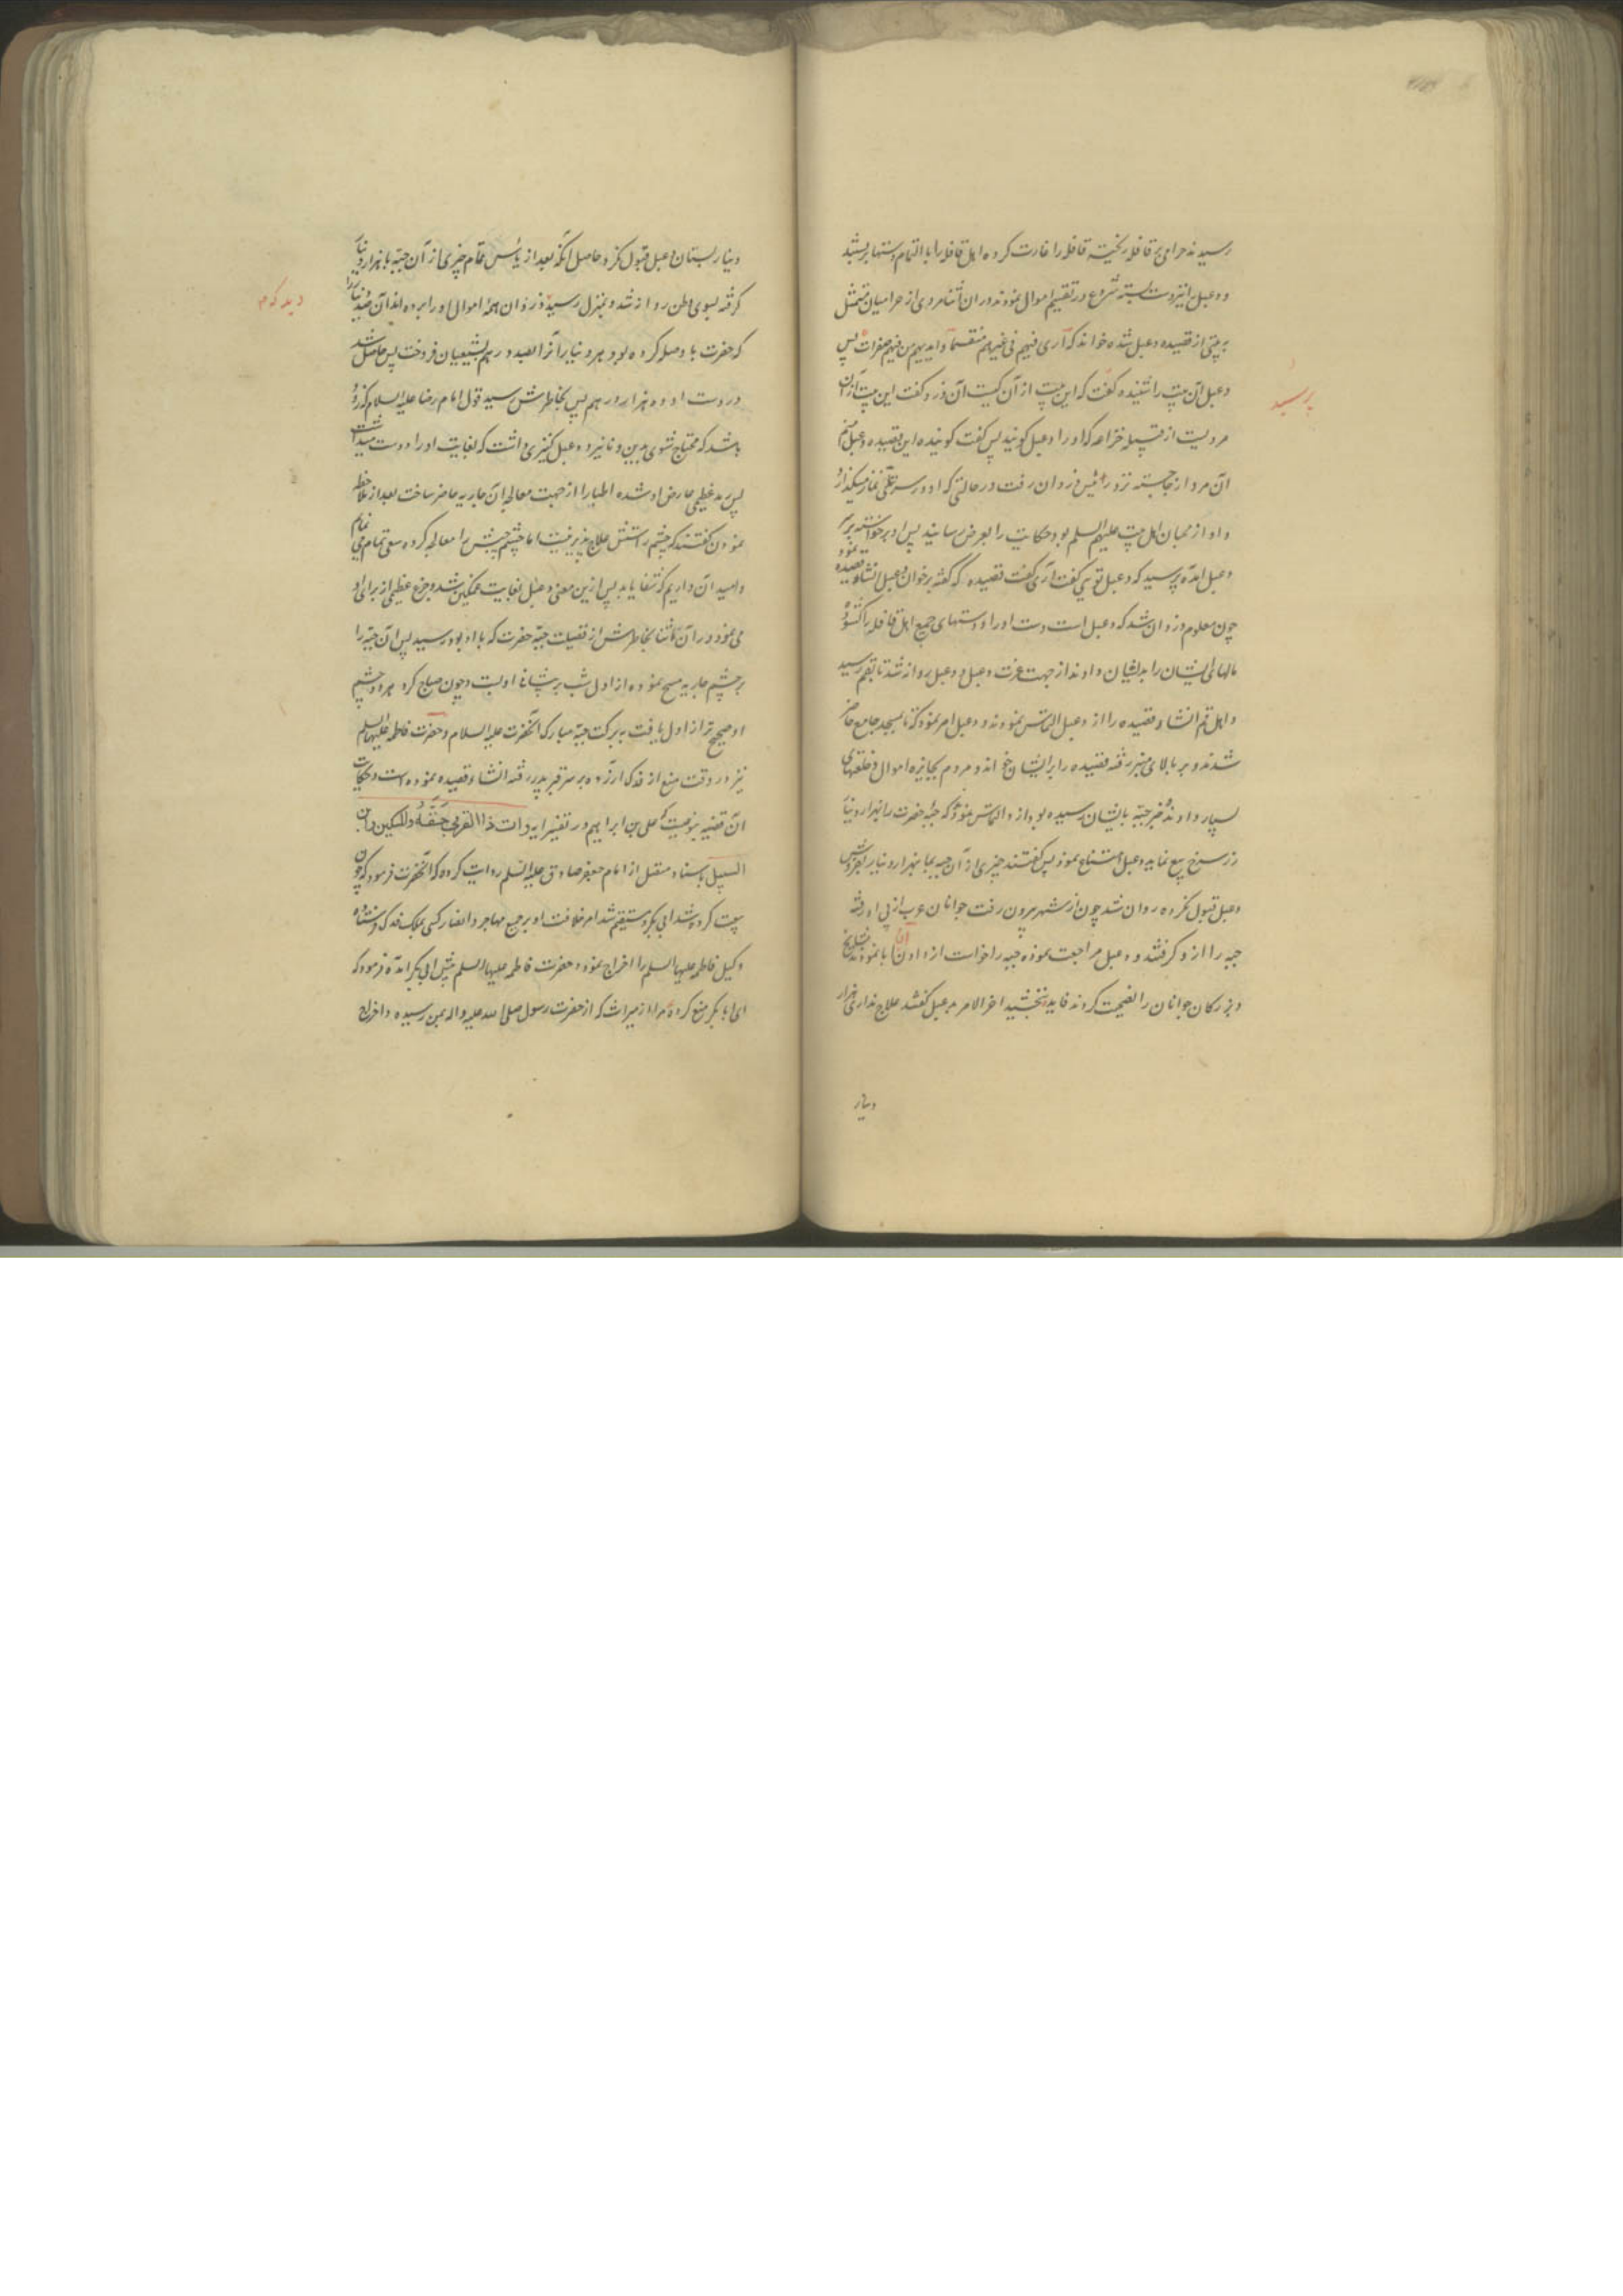 رسیدند حرامی بر قافله ریخته قافله را غارت کرده اهل قافله را بالتمام دستها بربستند
و دعبل را نیز دست بسته شروع در تقسیم اموال نمودند در آن اثنا مردی از حرامیان متمثل
به بیتی از قصیده دعبل شده خواند که أری فیئهم فی غیرهم متقسما وایدیهم من فیئهم صفرات پس
دعبل آن بیت را شنیده گفت که این بیت از آن کیست آن دزد گفت این بیت از آن
پرسید
مردیست از قبیله خزاعه که او را دعبل گویند پس گفت گوینده این قصیده دعبل منم
آن مرد از جا جسته نزد رئیس دزدان رفت در حالتی که او در سر تلی نماز میگذارد
و او از محبان اهل بیت علیهم السلم بود حکایت را بعرض رسانید پس او برخواسته بر سر
دعبل آمده پرسید که دعبل تویی گفت آری گفت قصیده که گفته برخوان دعبل انشاء قصیده نمود
چون معلوم دزدان شد که دعبل است دست او را و دستهای جمیع اهل قافله را گشود
مالهای ایشان را بدیشان دادند از جهت عزت دعبل و دعبل روانه شد تا بقم رسید
و اهل قم انشاء قصیده را از دعبل التماس نمودند و دعبل امر نمود که تا بمسجد جامع حاضر
شدند و بر بالای منبر رفته قصیده را برایشان خواند و مردم بجایزه اموال و خلعتهای
بسیار دادند و خبر جبه بایشان رسیده بود از و التماس نمودند که جبه حضرت را بهزار دینار
زر سرخ بیع نماید دعبل امتناع نمود پس گفتند چیزی از آن جبه بما بهزار دینار بفروش
دعبل قبول نکرده روان شد چون از شهر بیرون رفت جوانان عرب از پی او رفته
جبه را ازو گرفتند و دعبل مراجعت نموده جبه را خواست از دادن آن ابا نمودند مشایخ
و بزرگان جوانان را نصیحت کردند فایده نبخشید اخر الامر بدعبل گفتند علاج نداری هزار
دینار
دینار بستان دعبل قبول نکرد حاصل آنکه بعد از یاس تمام چیزی از آن جبه با هزار دینار
گرفته بسوی وطن روانه شد و بمنزل رسید دزدان همه اموال او را برده اند آن صد دینار را
دید که م
که حضرت با و صله کرده بود هر دینار آنرا بصد درهم بشیعیان فروخت پس حاصل شد
در دست او ده هزار درهم پس بخاطرش رسید قول امام رضا علیه السلام که زود
باشد که محتاج شوی بدین دنانیر و دعبل کنیزی داشت که بغایت او را دوست میداشت
پس رمد عظیمی عارض او شده اطبا را از جهت معالجه آن جاریه حاضر ساخت بعد از ملاحظه
نمودن گفتند که چشم راستش علاج پذیر نیست اما چشم چپش را معالجه کرده سعی تمام می نمایم
و امید آن داریم که شفا یابد پس ازین معنی دعبل بغایت غمگین شد و جزع عظیمی از برای او
می نمود در آن اثنا بخاطرش از فضیلت جبه حضرت که با او بود رسید پس آن جبه را
بر چشم جاریه مسح نموده از اول شب بر پیشانی او بست و چون صباح کرد هر دو چشم
او صحیح تر از اول یافت به برکت جبه مبارکه آنحضرت علیه السلام و حضرت فاطمه علیها السلم
نیز در وقت منع از فدک ارزده بر سر قبر پدر رفته انشاء قصیده نموده است و حکایت
آن قضیه بنوعیست که علی بن ابراهیم در تفسیر ایه وآت ذا القربی حقه والمسکین وابن
السبیل باسناد متصل از امام جعفر صادق علیه السلم روایت کرده که آنحضرت فرمود که چون
بیعت کرده شد ابی بکر و مستقیم شد امر خلافت او بر جمیع مهاجر و انصار کسی بملک فدک فرستاده
وکیل فاطمه علیها السلم را اخراج نمود و حضرت فاطمه علیها السلم پیش ابی بکر آمده فرمود که
ای ابا بکر منع کرده مرا از میراث که از حضرت رسول صلی الله علیه واله بمن رسیده و اخراج